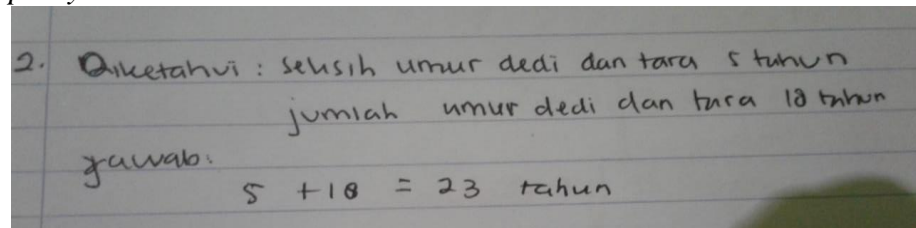 2. Diketahui : selisih umur dedi dan tara 5 tahun
jumlah umur dedi dan tara 18 tahun
Jawab:
5 + 18 = 23 tahun